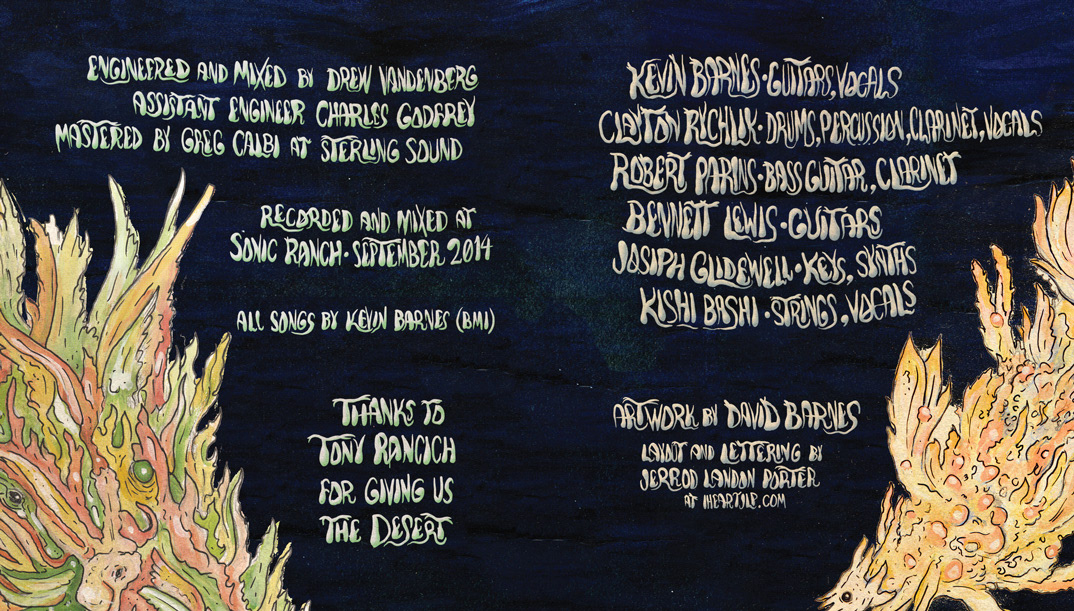 ENGINEERED AND MIXED BY DREW VANDENBERG
ASSISTANT ENGINEER CHARLES GODFREY
MASTERED BY GREG CALBI AT STERLING SOUND
RECORDED AND MIXED AT
SONIC RANCH · SEPTEMBER 2014
ALL SONGS BY KEVIN BARNES (BMI)
THANKS TO
TONY RANCICH
FOR GIVING US
THE DESERT
KEVIN BARNES · GUITARS, VOCALS
CLAYTON RYCHLIK · DRUMS, PERCUSSION, CLARINET, VOCALS
ROBERT PARINS · BASS GUITAR, CLARINET
BENNETT LEWIS · GUITARS
JOSEPH GLIDEWELL · KEYS, SYNTHS
KISHI BASHI · STRINGS, VOCALS
ARTWORK BY DAVID BARNES
LAYOUT AND LETTERING BY
JERROD LANDON PORTER
AT